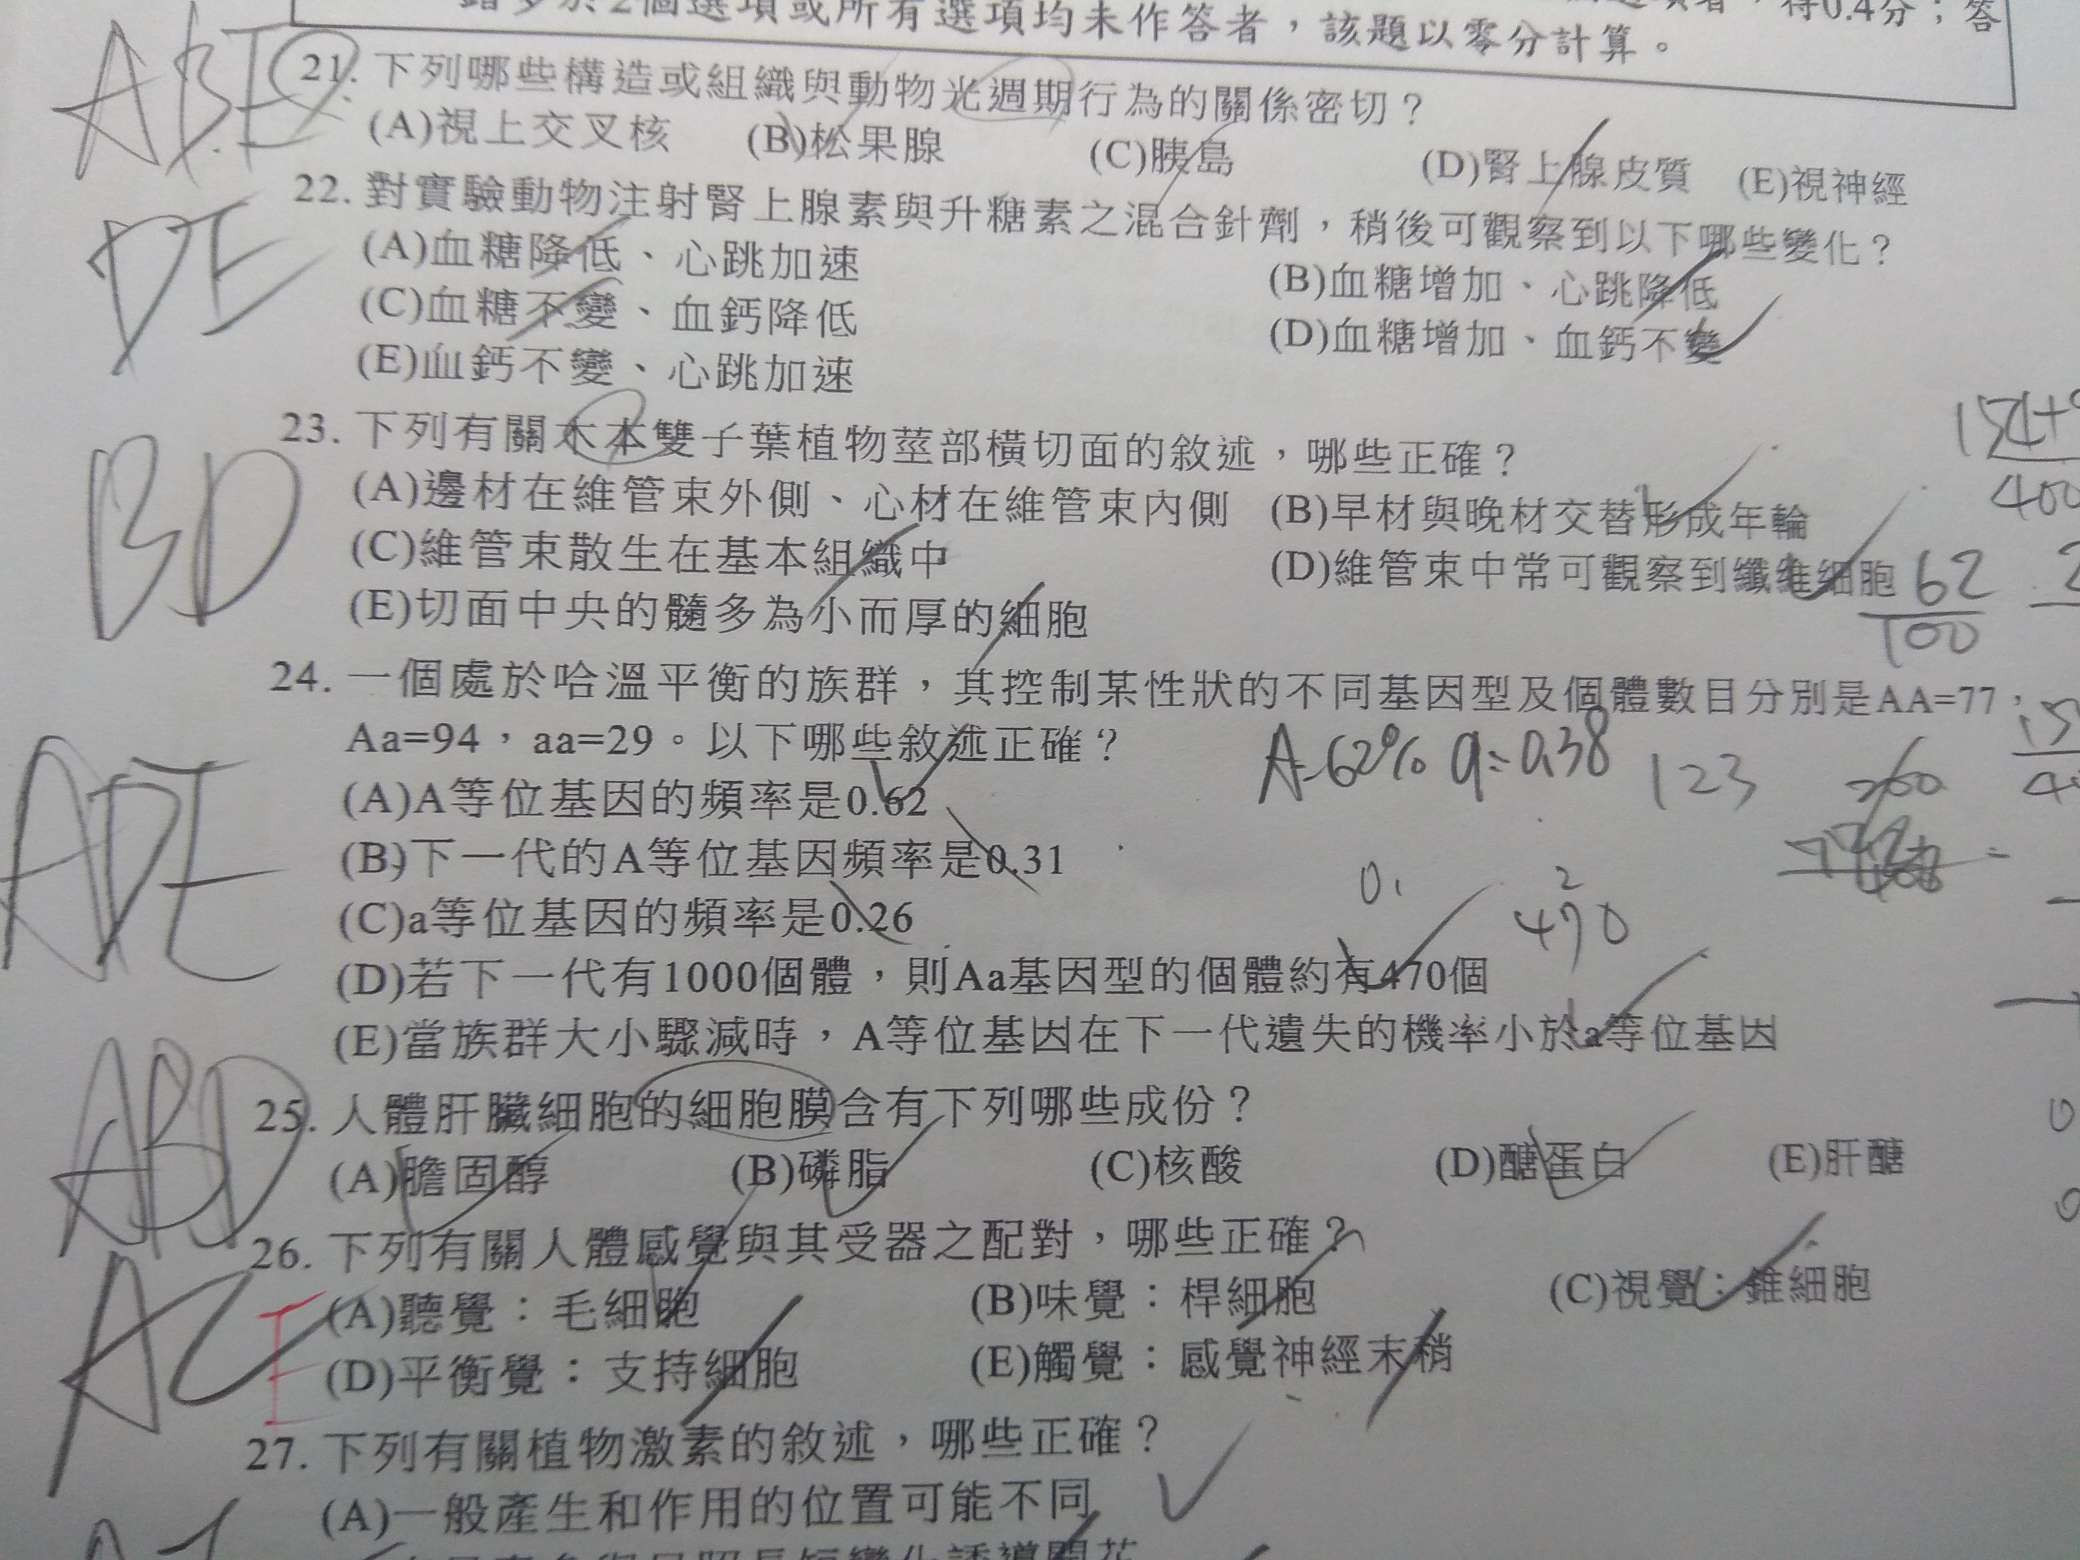 錯多於2個選項或所有選項均未作答者，該題以零分計算。
得0.4分；答
ABE
21. 下列哪些構造或組織與動物光週期行為的關係密切？
(A)視上交叉核 (B)松果腺 (C)胰島 (D)腎上腺皮質 (E)視神經
DE
22. 對實驗動物注射腎上腺素與升糖素之混合針劑，稍後可觀察到以下哪些變化？
(A)血糖降低、心跳加速 (B)血糖增加、心跳降低
(C)血糖不變、血鈣降低 (D)血糖增加、血鈣不變
(E)血鈣不變、心跳加速
BD
23. 下列有關木本雙子葉植物莖部橫切面的敘述，哪些正確？
(A)邊材在維管束外側、心材在維管束內側 (B)早材與晚材交替形成年輪
(C)維管束散生在基本組織中 (D)維管束中常可觀察到纖維細胞
(E)切面中央的髓多為小而厚的細胞
400
62
100
24. 一個處於哈溫平衡的族群，其控制某性狀的不同基因型及個體數目分別是AA=77，
Aa=94，aa=29。以下哪些敘述正確？
A=62% a=0.38 123
ADE
(A)A等位基因的頻率是0.62
(B)下一代的A等位基因頻率是0.31
(C)a等位基因的頻率是0.26
470
(D)若下一代有1000個體，則Aa基因型的個體約有470個
(E)當族群大小驟減時，A等位基因在下一代遺失的機率小於a等位基因
ABD
25. 人體肝臟細胞的細胞膜含有下列哪些成份？
(A)膽固醇 (B)磷脂 (C)核酸 (D)醣蛋白 (E)肝醣
26. 下列有關人體感覺與其受器之配對，哪些正確？
ACE
(A)聽覺：毛細胞 (B)味覺：桿細胞 (C)視覺：錐細胞
(D)平衡覺：支持細胞 (E)觸覺：感覺神經末稍
27. 下列有關植物激素的敘述，哪些正確？
(A)一般產生和作用的位置可能不同